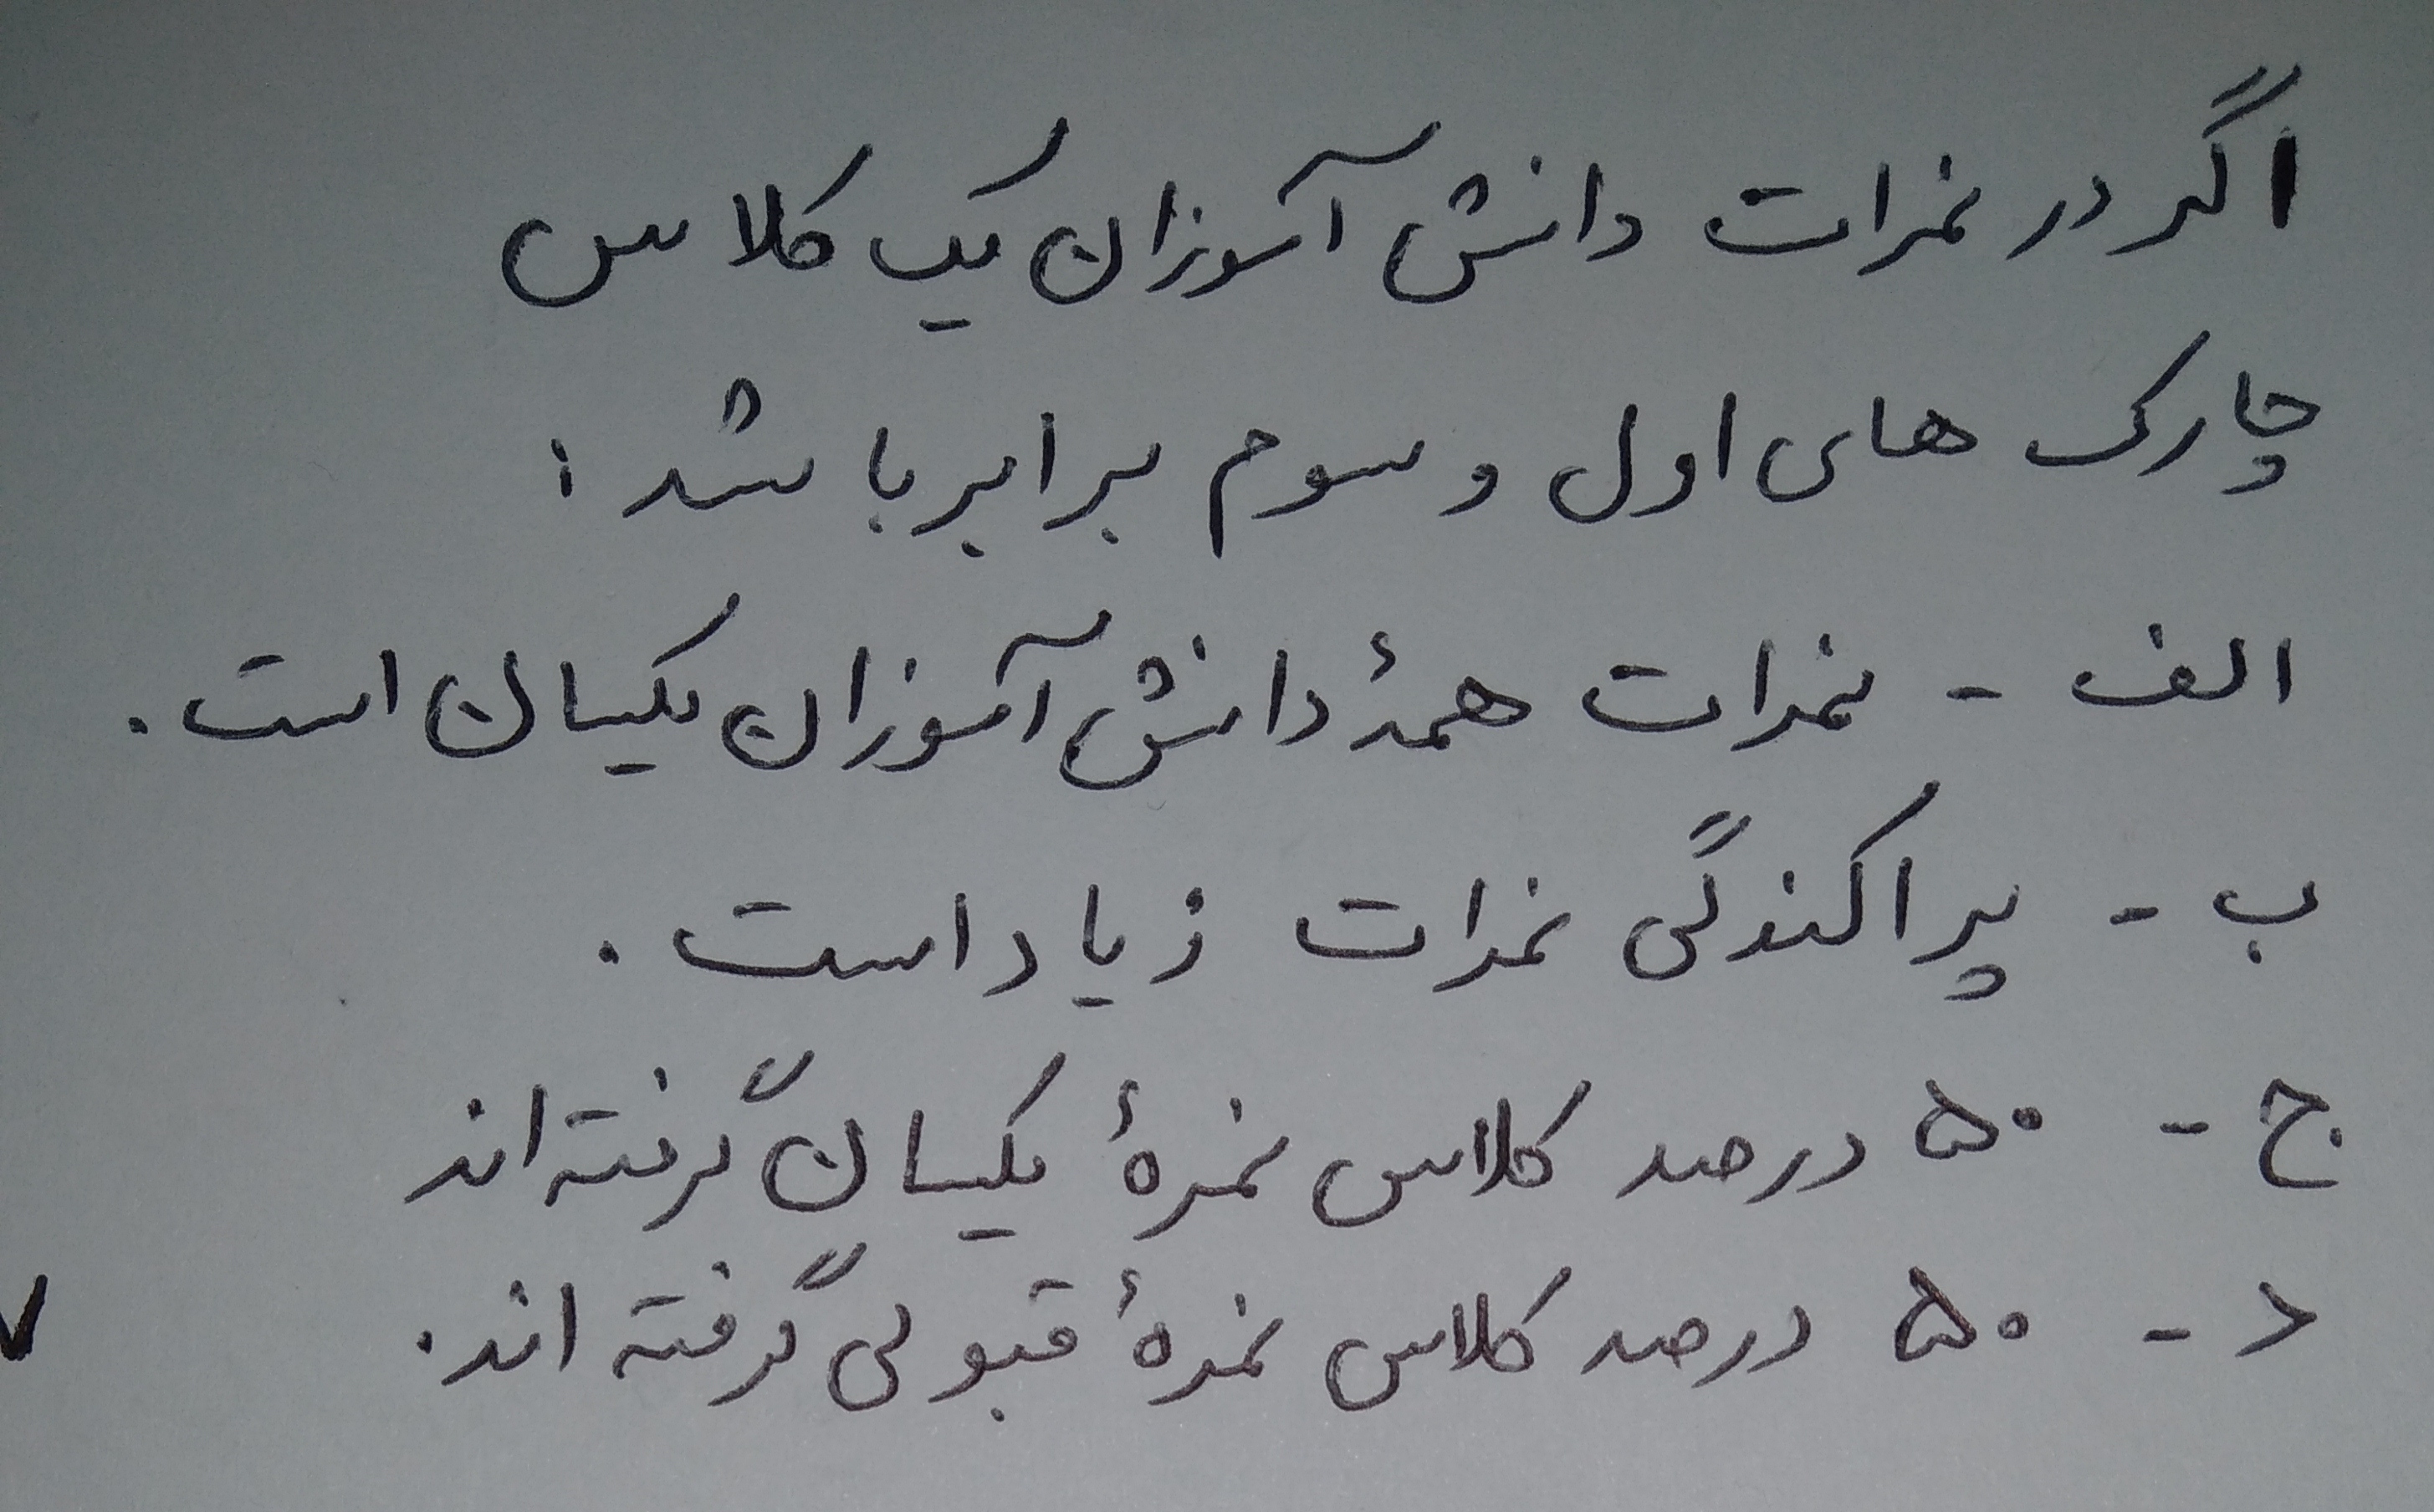 اگر در نمرات دانش آموزان یک کلاس
چارک های اول و سوم برابر باشد :
الف - نمرات همهٔ دانش آموزان یکسان است .
ب - پراکندگی نمرات زیاد است .
ج - ۵۰ درصد کلاس نمرهٔ یکسان گرفته اند
د - ۵۰ درصد کلاس نمرهٔ قبولی گرفته اند .
۷